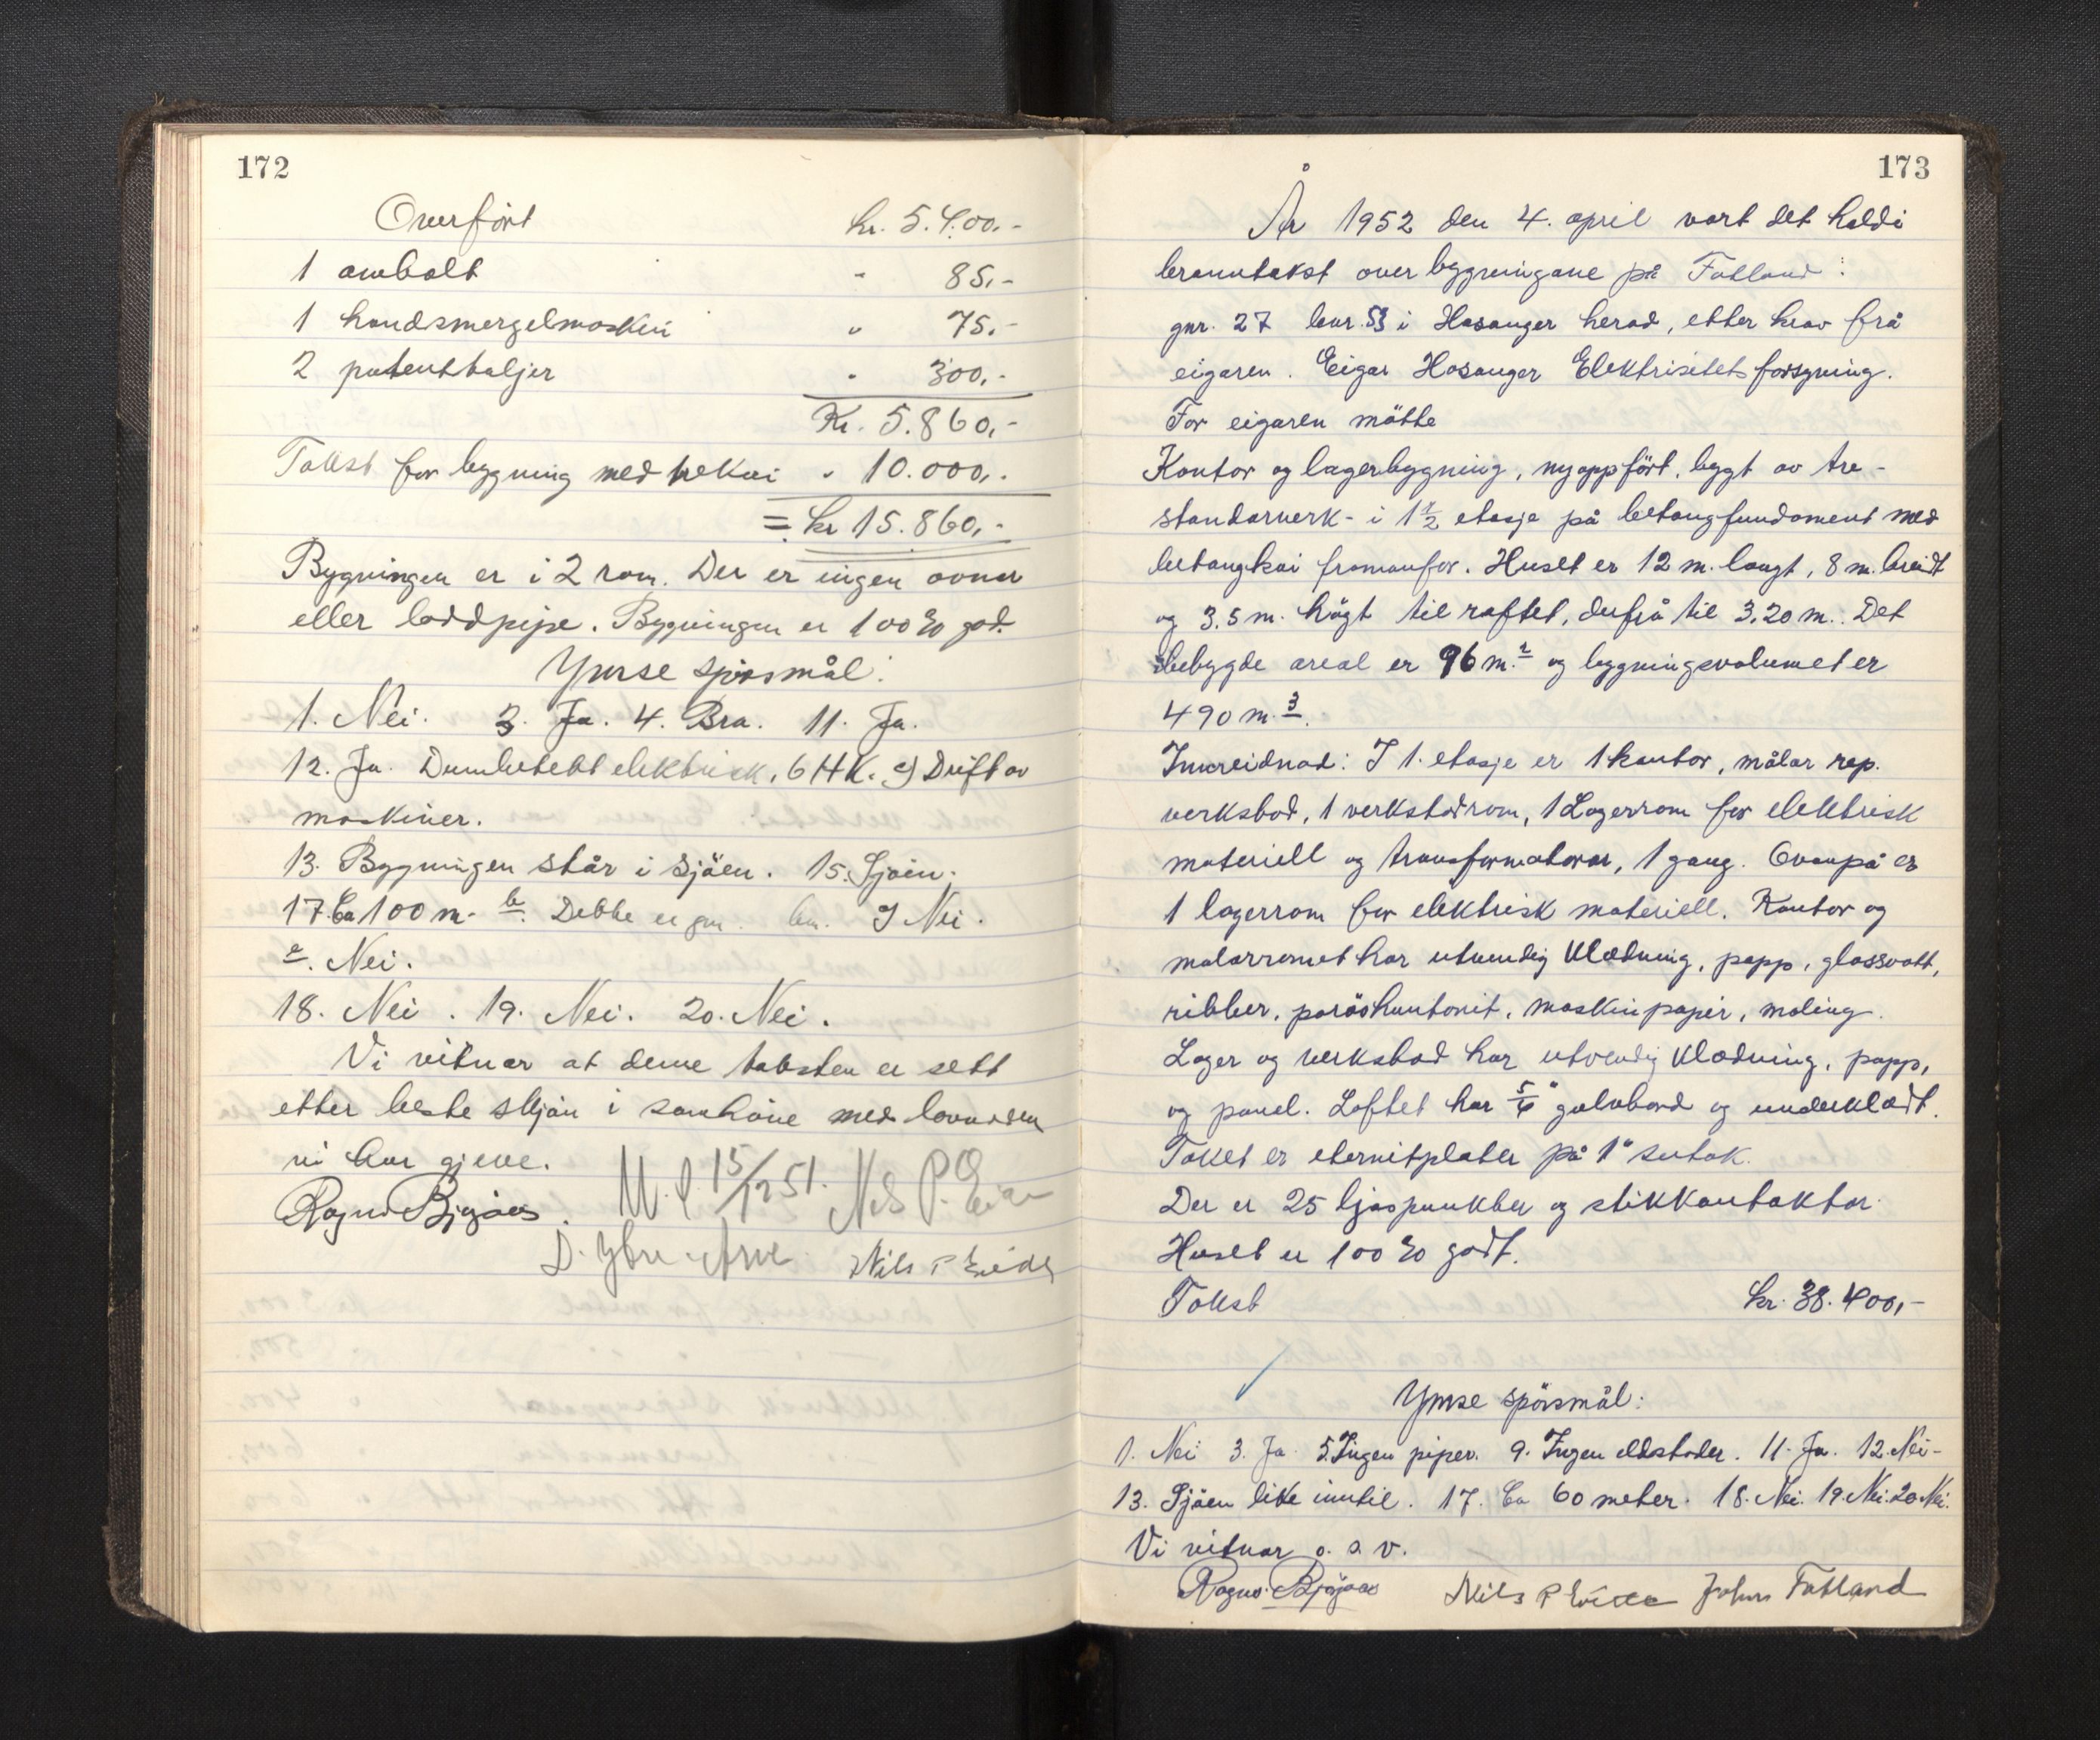 172
Overført kr. 5.400.-
1 ambolt " 85,-
1 handsmergelmaskin " 75,-
2 patenttaljer " 300,-
Kr. 5.860,-
Takst for bygning med trekai " 10.000,-
= kr 15.860,-
Bygningen er i 2 rom. Der er ingen ovner
eller loddpipe. Bygningen er 100 % god.
Ymse spörsmål:
1. Nei. 3. Ja. 4. Bra. 11. Ja.
12. Ja. elektrisk, 6 HK. Drift av
maskiner.
13. Bygningen står i sjöen. 15. Sjöen.
17. Ca 100 m. b. Dette er gnr. bnr. Nei.
e. Nei.
18. Nei. 19. Nei. 20. Nei.
Vi vitnar at denne taksten er sett
etter beste skjön i samhöve med lovnaden
vi har gjeve.
15/12 51.
Ragnv. Bjøjaas. Nils P. Eide
Nils P Eide
173
År 1952 den 4. april vart det haldi
branntakst over bygningane på Fatland:
gnr. 27 bnr. 53 i Hosanger herad, etter krav frå
eigaren. Eigar Hosanger Elektrisitetsforsyning.
For eigaren mötte
Kontor og lagerbygning, nyoppfört, bygt av tre-
standarverk - i 1 1/2 etasje på betongfundament med
betongkai framanfor. Huset er 12 m. langt, 8 m. breidt
og 3,5 m. högt til raftet, derfrå til 3,20 m. Det
bebygde areal er 96 m.2 og bygningsvolumet er
490 m.3.
Innreidnad: I 1. etasje er 1 kontor, målar rep.
verksted, 1 verkstadrom, 1 Lagerrom for elektrisk
materiell og transformatorar, 1 gang. Ovanpå er
1 lagerrom for elektrisk materiell. Kontor og
målarromet har utvendig klædning, papp, glassvatt,
ribber, poröshuntonit, maskinpapir, maling.
Lager og verkstad har utvendig klædning, papp,
og panel. Loftet har 5/4" golvbord og underklædt.
Taket er eternitplater på 1" sutak.
Der er 25 ljospunkter og stikkontaktar.
Huset er 100 % godt.
Takst kr. 38.400,-
Ymse spörsmål:
1. Nei 3. Ja 5. Ingen piper. 9. Ingen eldstader. 11. Ja. 12. Nei -
13. Sjöen like inntil. 17. Ca 60 meter. 18. Nei. 19. Nei. 20. Nei.
Vi vitnar o. s. v.
Ragnv. Bjøjaas Nils P Eide Johan Fatland